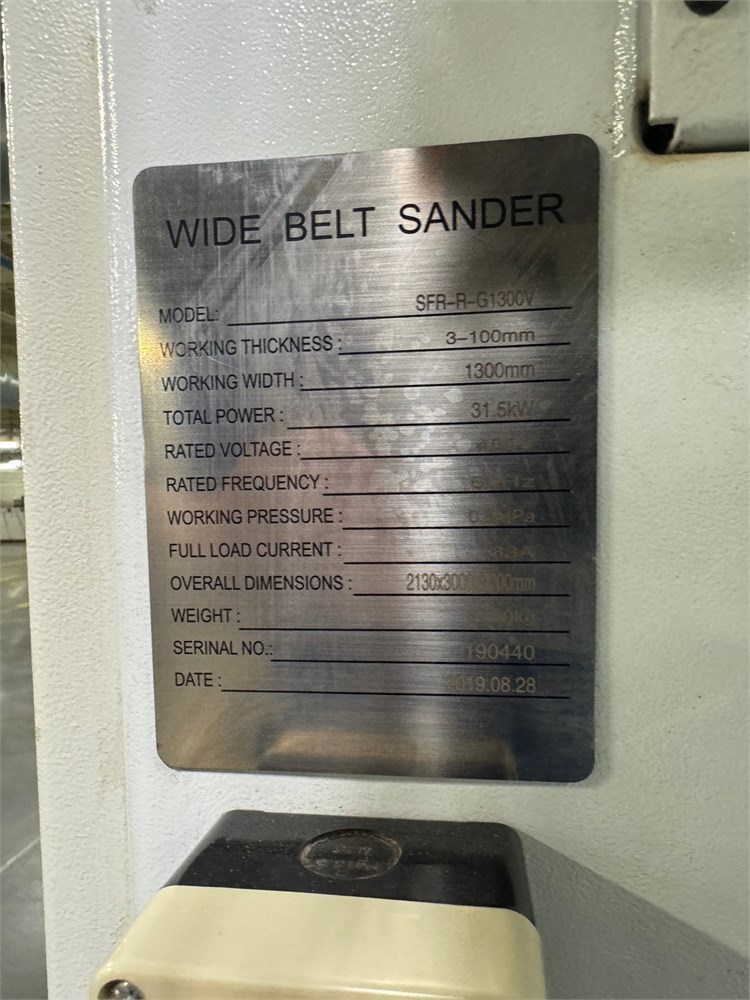 WIDE BELT SANDER
MODEL: SFR-R-G1300V
WORKING THICKNESS: 3-100mm
WORKING WIDTH: 1300mm
TOTAL POWER: 31.5kW
RATED VOLTAGE:
RATED FREQUENCY:
WORKING PRESSURE:
FULL LOAD CURRENT:
OVERALL DIMENSIONS:
WEIGHT:
SERINAL NO.: 190440
DATE: 2019.08.28